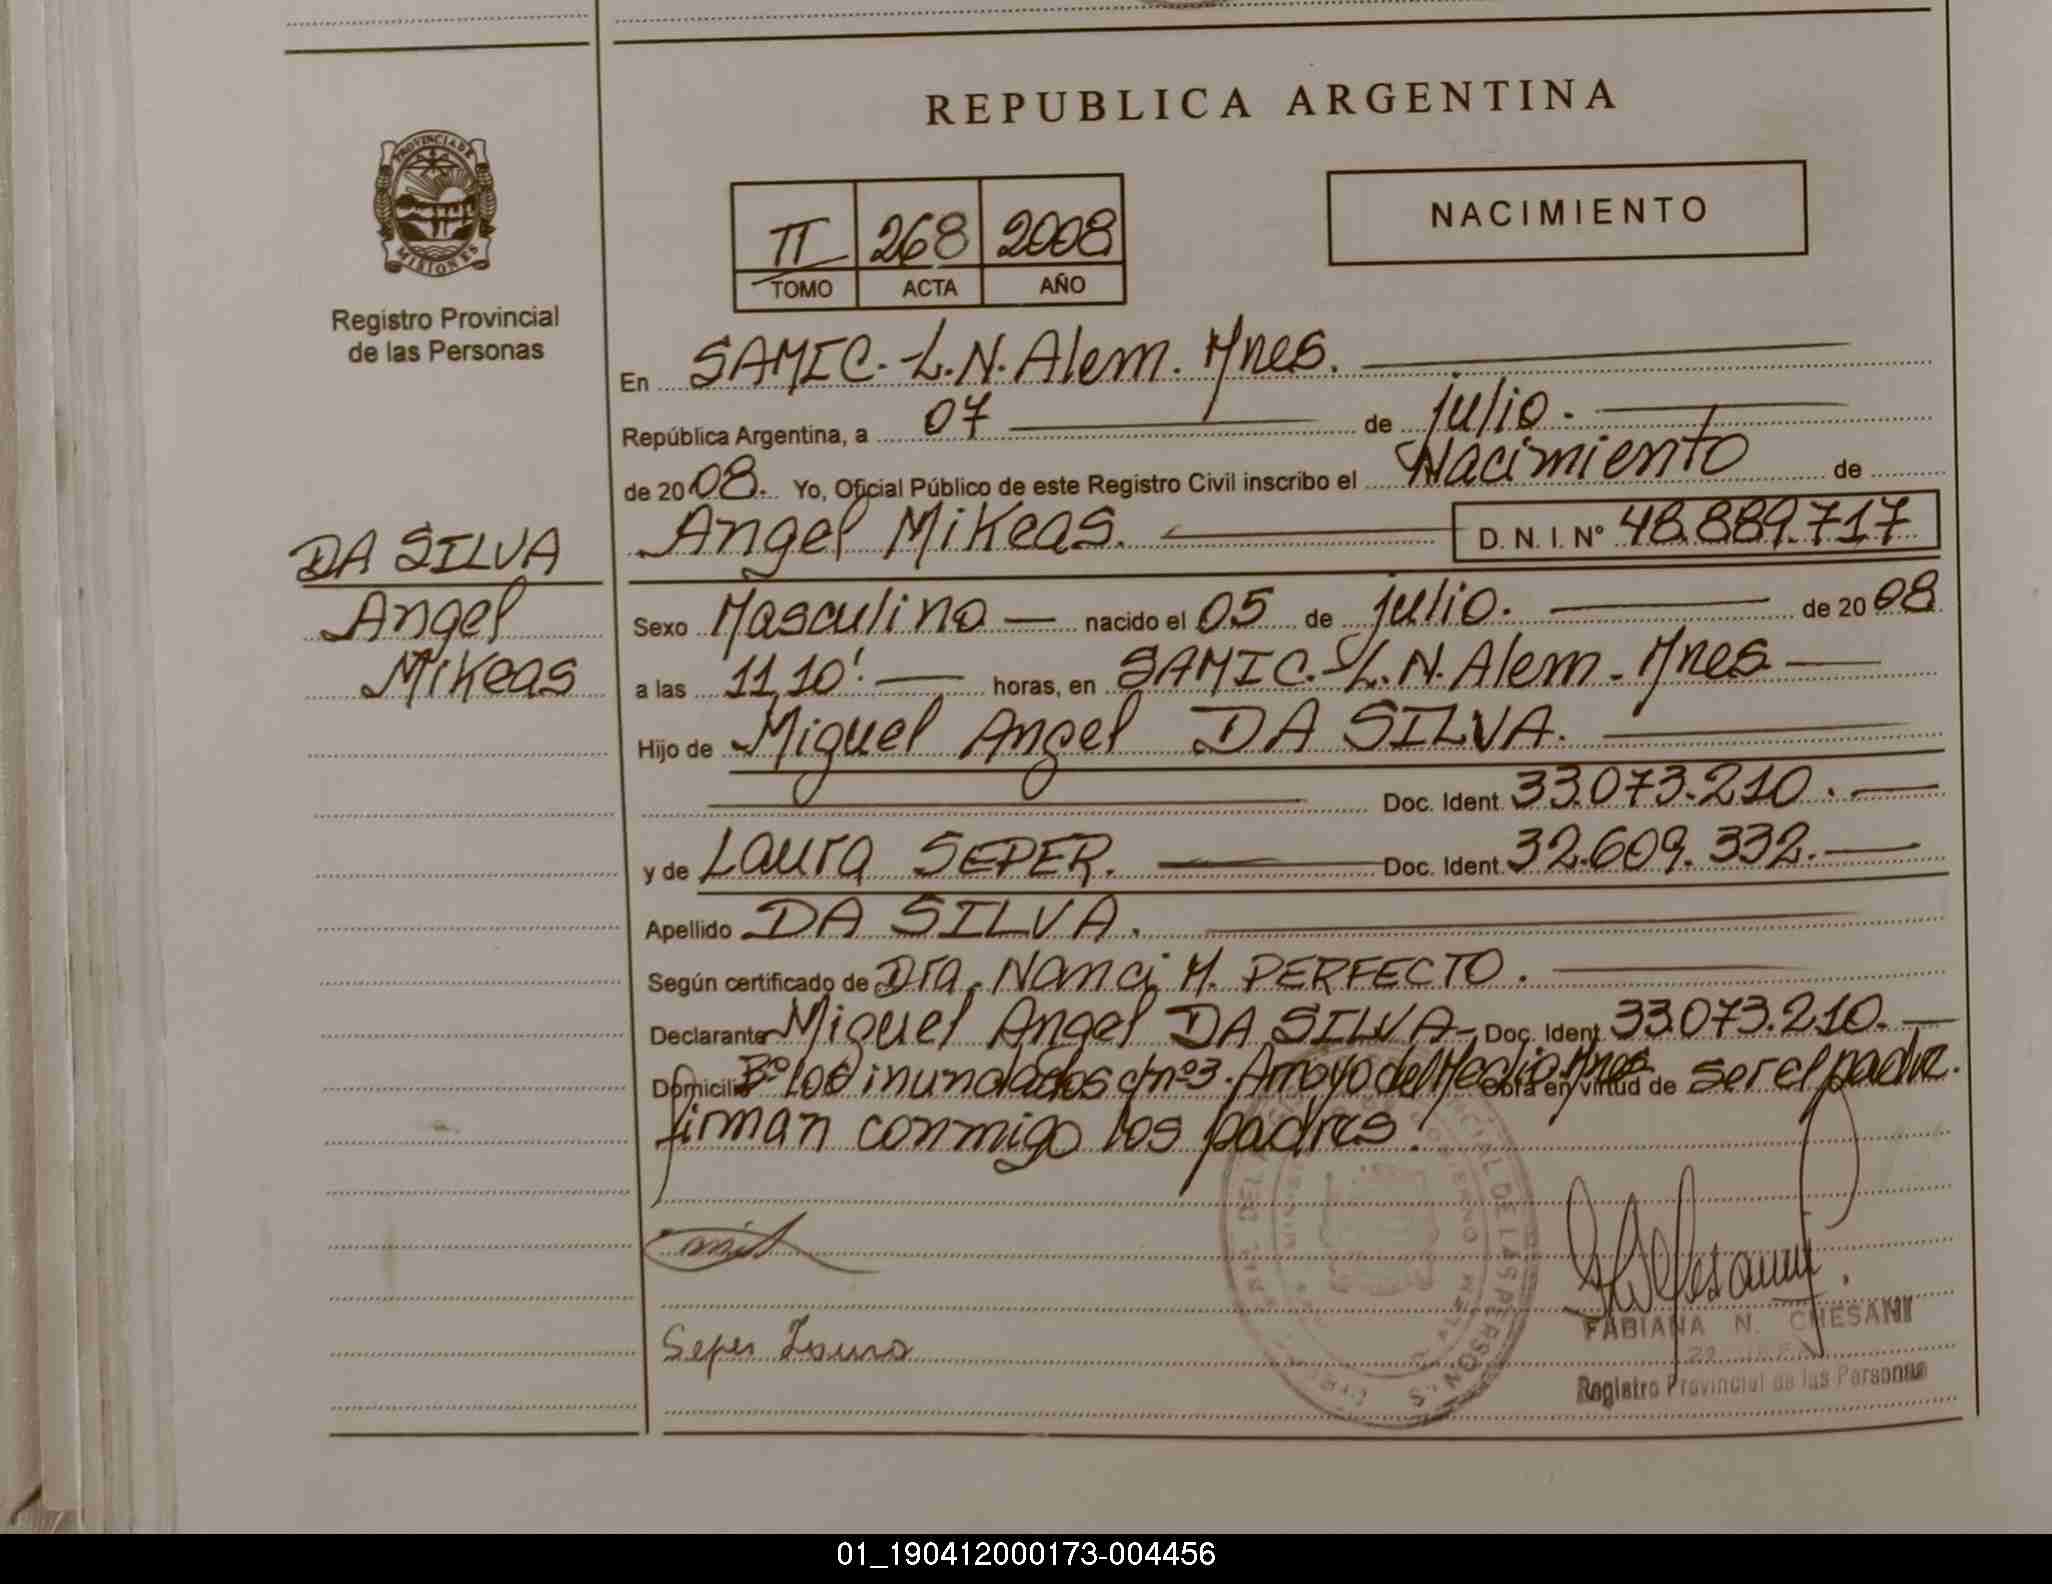 REPUBLICA ARGENTINA
PROVINCIA DE
MISIONES
Registro Provincial
de las Personas
II 268 2008
TOMO ACTA AÑO
NACIMIENTO
En SAMIC.-L.N.Alem. Mnes.
República Argentina, a 07 de julio.
de 2008. Yo, Oficial Público de este Registro Civil inscribo el Nacimiento de
Angel Mikeas. D.N.I. Nº 48.889.717
DA SILVA
Angel
Mikeas
Sexo Masculino nacido el 05 de julio. de 2008
a las 11,10' horas, en SAMIC.-L.N.Alem-Mnes
Hijo de Miguel Angel DA SILVA.
Doc. Ident. 33.073.210.
y de Laura SEPER. Doc. Ident. 32.609.332.
Apellido DA SILVA.
Según certificado de Dra. Nanci M. PERFECTO.
Declarante Miguel Angel DA SILVA- Doc. Ident. 33.073.210.
Domicilio Bº los inundados nº3. Arroyo del Medio. Mnes Obra en virtud de ser el padre.
firman conmigo los padres.
Seper Laura
FABIANA N. CHESANI
Registro Provincial de las Personas
01_190412000173-004456